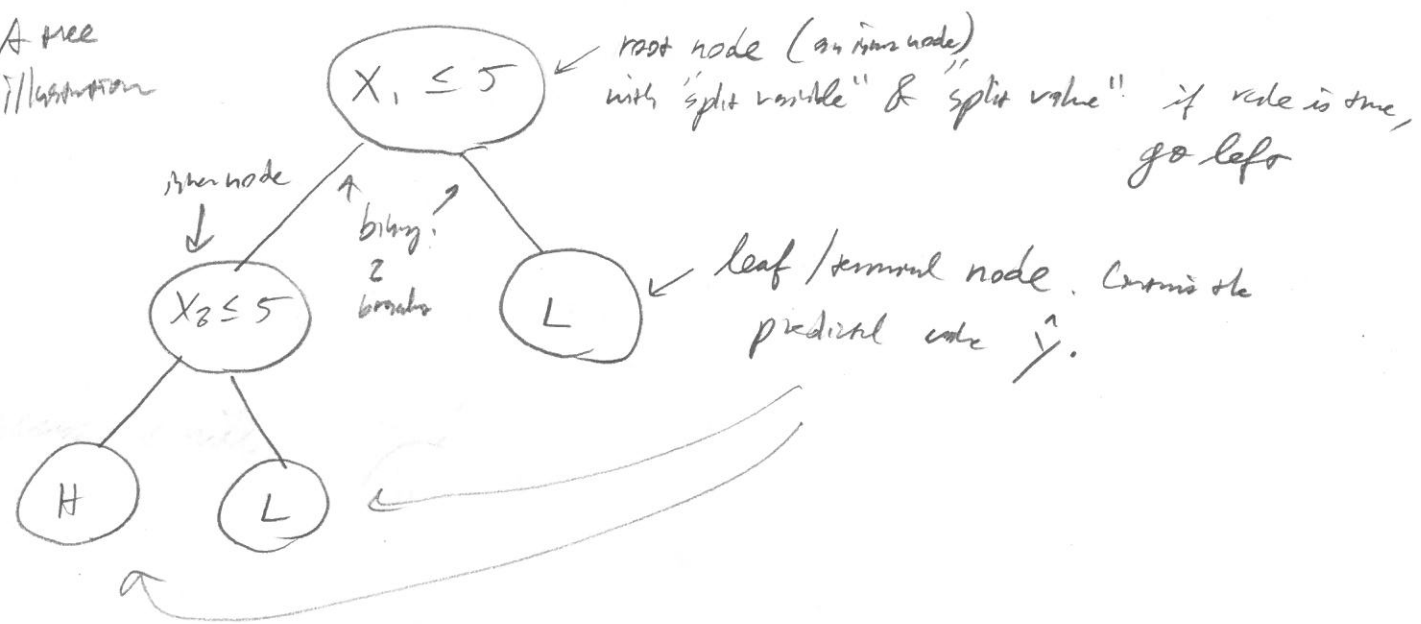 A tree
illustration
X₁ ≤ 5
root node (an inner node)
with "split variable" & "split value". if rule is true,
go left
inner node
binary:
2
branches
X₂ ≤ 5
L
leaf/terminal node. Contains the
predicted value ŷ.
H
L